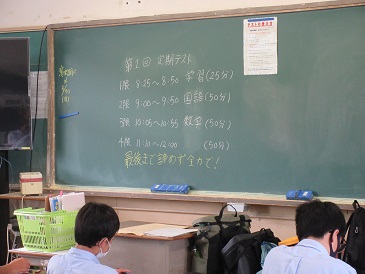 第1回 定期テスト
1限 8:25～8:50 学習(25分)
2限 9:00～9:50 国語(50分)
3限 10:05～10:55 数学(50分)
4限 11:10～12:00 (50分)
最後まで諦めず全力で!